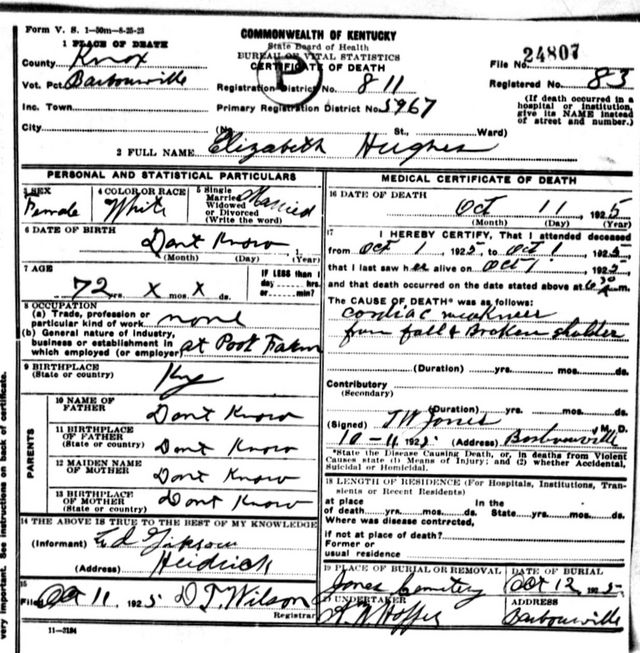 Form V. S. 1—50m—8-25-23
COMMONWEALTH OF KENTUCKY
State Board of Health
BUREAU OF VITAL STATISTICS
CERTIFICATE OF DEATH
1 PLACE OF DEATH
County Knox
File No. 24807
Vot. Pct. Barbourville
Registration District No. 811
Registered No. 83
Inc. Town
Primary Registration District No. 5967
(If death occurred in a hospital or institution, give its NAME instead of street and number.)
City (No. St., Ward)
2 FULL NAME Elizabeth Hughes
PERSONAL AND STATISTICAL PARTICULARS
3 SEX
Female
4 COLOR OR RACE
White
5 Single
Married
Widowed
or Divorced
(Write the word)
Married
6 DATE OF BIRTH
Dont Know, 1
(Month) (Day) (Year)
7 AGE
72 yrs. X mos. X ds.
IF LESS than 1
day hrs.
or min.?
8 OCCUPATION
(a) Trade, profession or
particular kind of work none
(b) General nature of industry,
business or establishment in
which employed (or employer) at Poot Farm
9 BIRTHPLACE
(State or country)
Ky
PARENTS
10 NAME OF
FATHER Dont Know
11 BIRTHPLACE
OF FATHER
(State or country) Dont Know
12 MAIDEN NAME
OF MOTHER Dont Know
13 BIRTHPLACE
OF MOTHER
(State or country) Dont Know
14 THE ABOVE IS TRUE TO THE BEST OF MY KNOWLEDGE
(Informant)
(Address) Heidrick
15
Filed Oct 11, 1925 D T. Wilson
Registrar
11—3184
MEDICAL CERTIFICATE OF DEATH
16 DATE OF DEATH
Oct 11, 1925
(Month) (Day) (Year)
17
I HEREBY CERTIFY, That I attended deceased
from Oct 1, 1925 to Oct 1, 1925
that I last saw her alive on Oct 1, 1925
and that death occurred on the date stated above at 6 30 m.
The CAUSE OF DEATH* was as follows:
cordiac weakness
from fall & Broken sholder
(Duration) yrs. mos. ds.
Contributory
(Secondary)
(Duration) yrs. mos. ds.
(Signed) J W Jones M. D.
10-11 1925 (Address) Barbourville
*State the Disease Causing Death, or, in deaths from Violent
Causes state (1) Means of Injury; and (2) whether Accidental,
Suicidal or Homicidal.
18 LENGTH OF RESIDENCE (For Hospitals, Institutions, Tran-
sients or Recent Residents)
at place In the
of death yrs. mos. ds. State yrs. mos. ds.
Where was disease contrrcted,
if not at place of death?
Former or
usual residence
19 PLACE OF BURIAL OR REMOVAL
Jones Cemetery
DATE OF BURIAL
Oct 12, 1925
UNDERTAKER
ADDRESS
Barbourville
very important. See instructions on back of certificate.